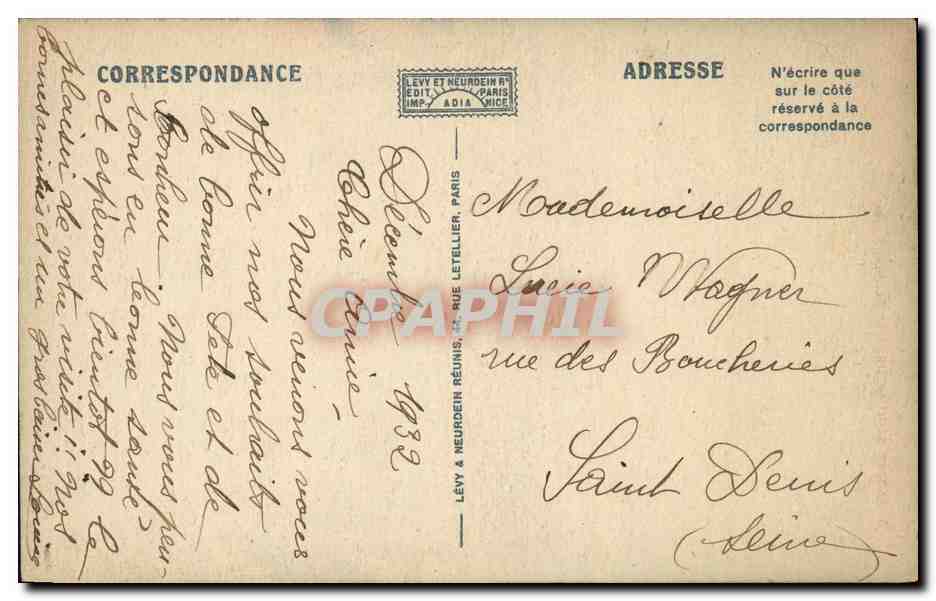 CORRESPONDANCE
LEVY ET NEURDEIN Rs
EDIT. PARIS
IMP. ADIA NICE
ADRESSE
N'écrire que
sur le côté
réservé à la
correspondance
Décembre 1932
Chère Amie –
Nous venons vous
offrir nos souhaits
de bonne Fête et de
bonheur Nous vous pen-
sons en bonne santé
et espérons bientot le
plaisir de votre visite!! Nos
bonnes amitiés et un gros baiser Louise
LÉVY & NEURDEIN RÉUNIS, 44, RUE LETELLIER, PARIS
Mademoiselle
Lucie Wagner
rue des Boucheries
Saint Denis
(Seine)
CPAPHIL